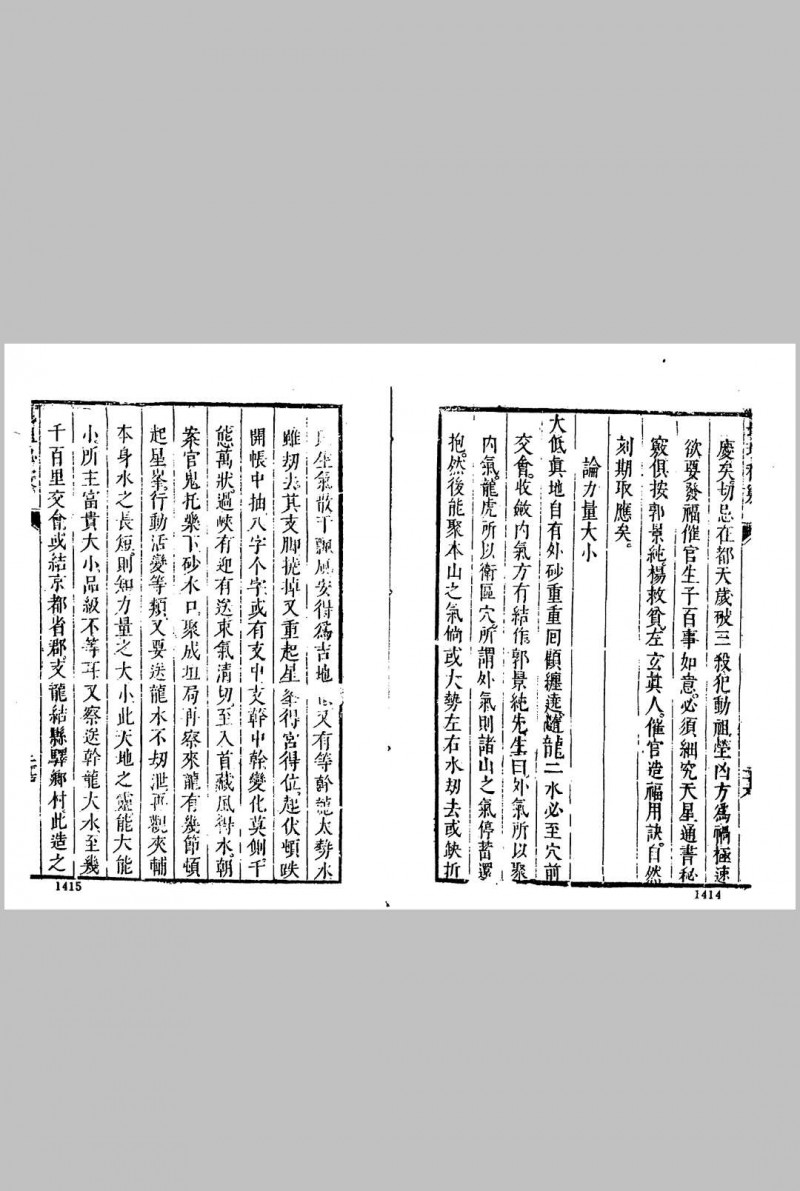 慶矣切忌在都天歲破三殺犯動祖塋凶方為禍極速
欲要發福催官生子百事如意必須細究天星通書秘
竅俱按郭景純楊救貧左玄真人催官造福用訣自然
刻期取應矣
論力量大小
大低真地自有外砂重重囘顧纏遶隨龍二水必至穴前
交會收斂內氣方有結作郭景純先生曰外氣所以聚
內氣龍虎所以衛區穴所謂外氣則諸山之氣停蓄還
抱然後能聚本山之氣倘或大勢左右水刧去或缺折
1414
生氣散于飄風安得爲吉地又有等幹龍大勢水
雖刧去其支脚橈掉又重起星峯得宮得位起伏頓跌
開帳中抽八字个字或有支中支幹中幹變化莫側千
態萬狀過峽有迎有送束氣清切至入首藏風得水朝
案官鬼托樂下砂水口聚成垣局再察來龍有幾節頓
起星峯行動活變等類又要送龍水不刧泄再觀夾輔
本身水之長短則知力量之大小此天地之靈能大能
小所主富貴大小品級不等耳又察送幹龍大水至幾
千百里交會或結京都省郡支龍結縣驛鄉村此造之
1415